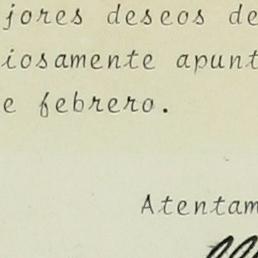 jores deseos de
iosamente apunt
e febrero.
Atentam